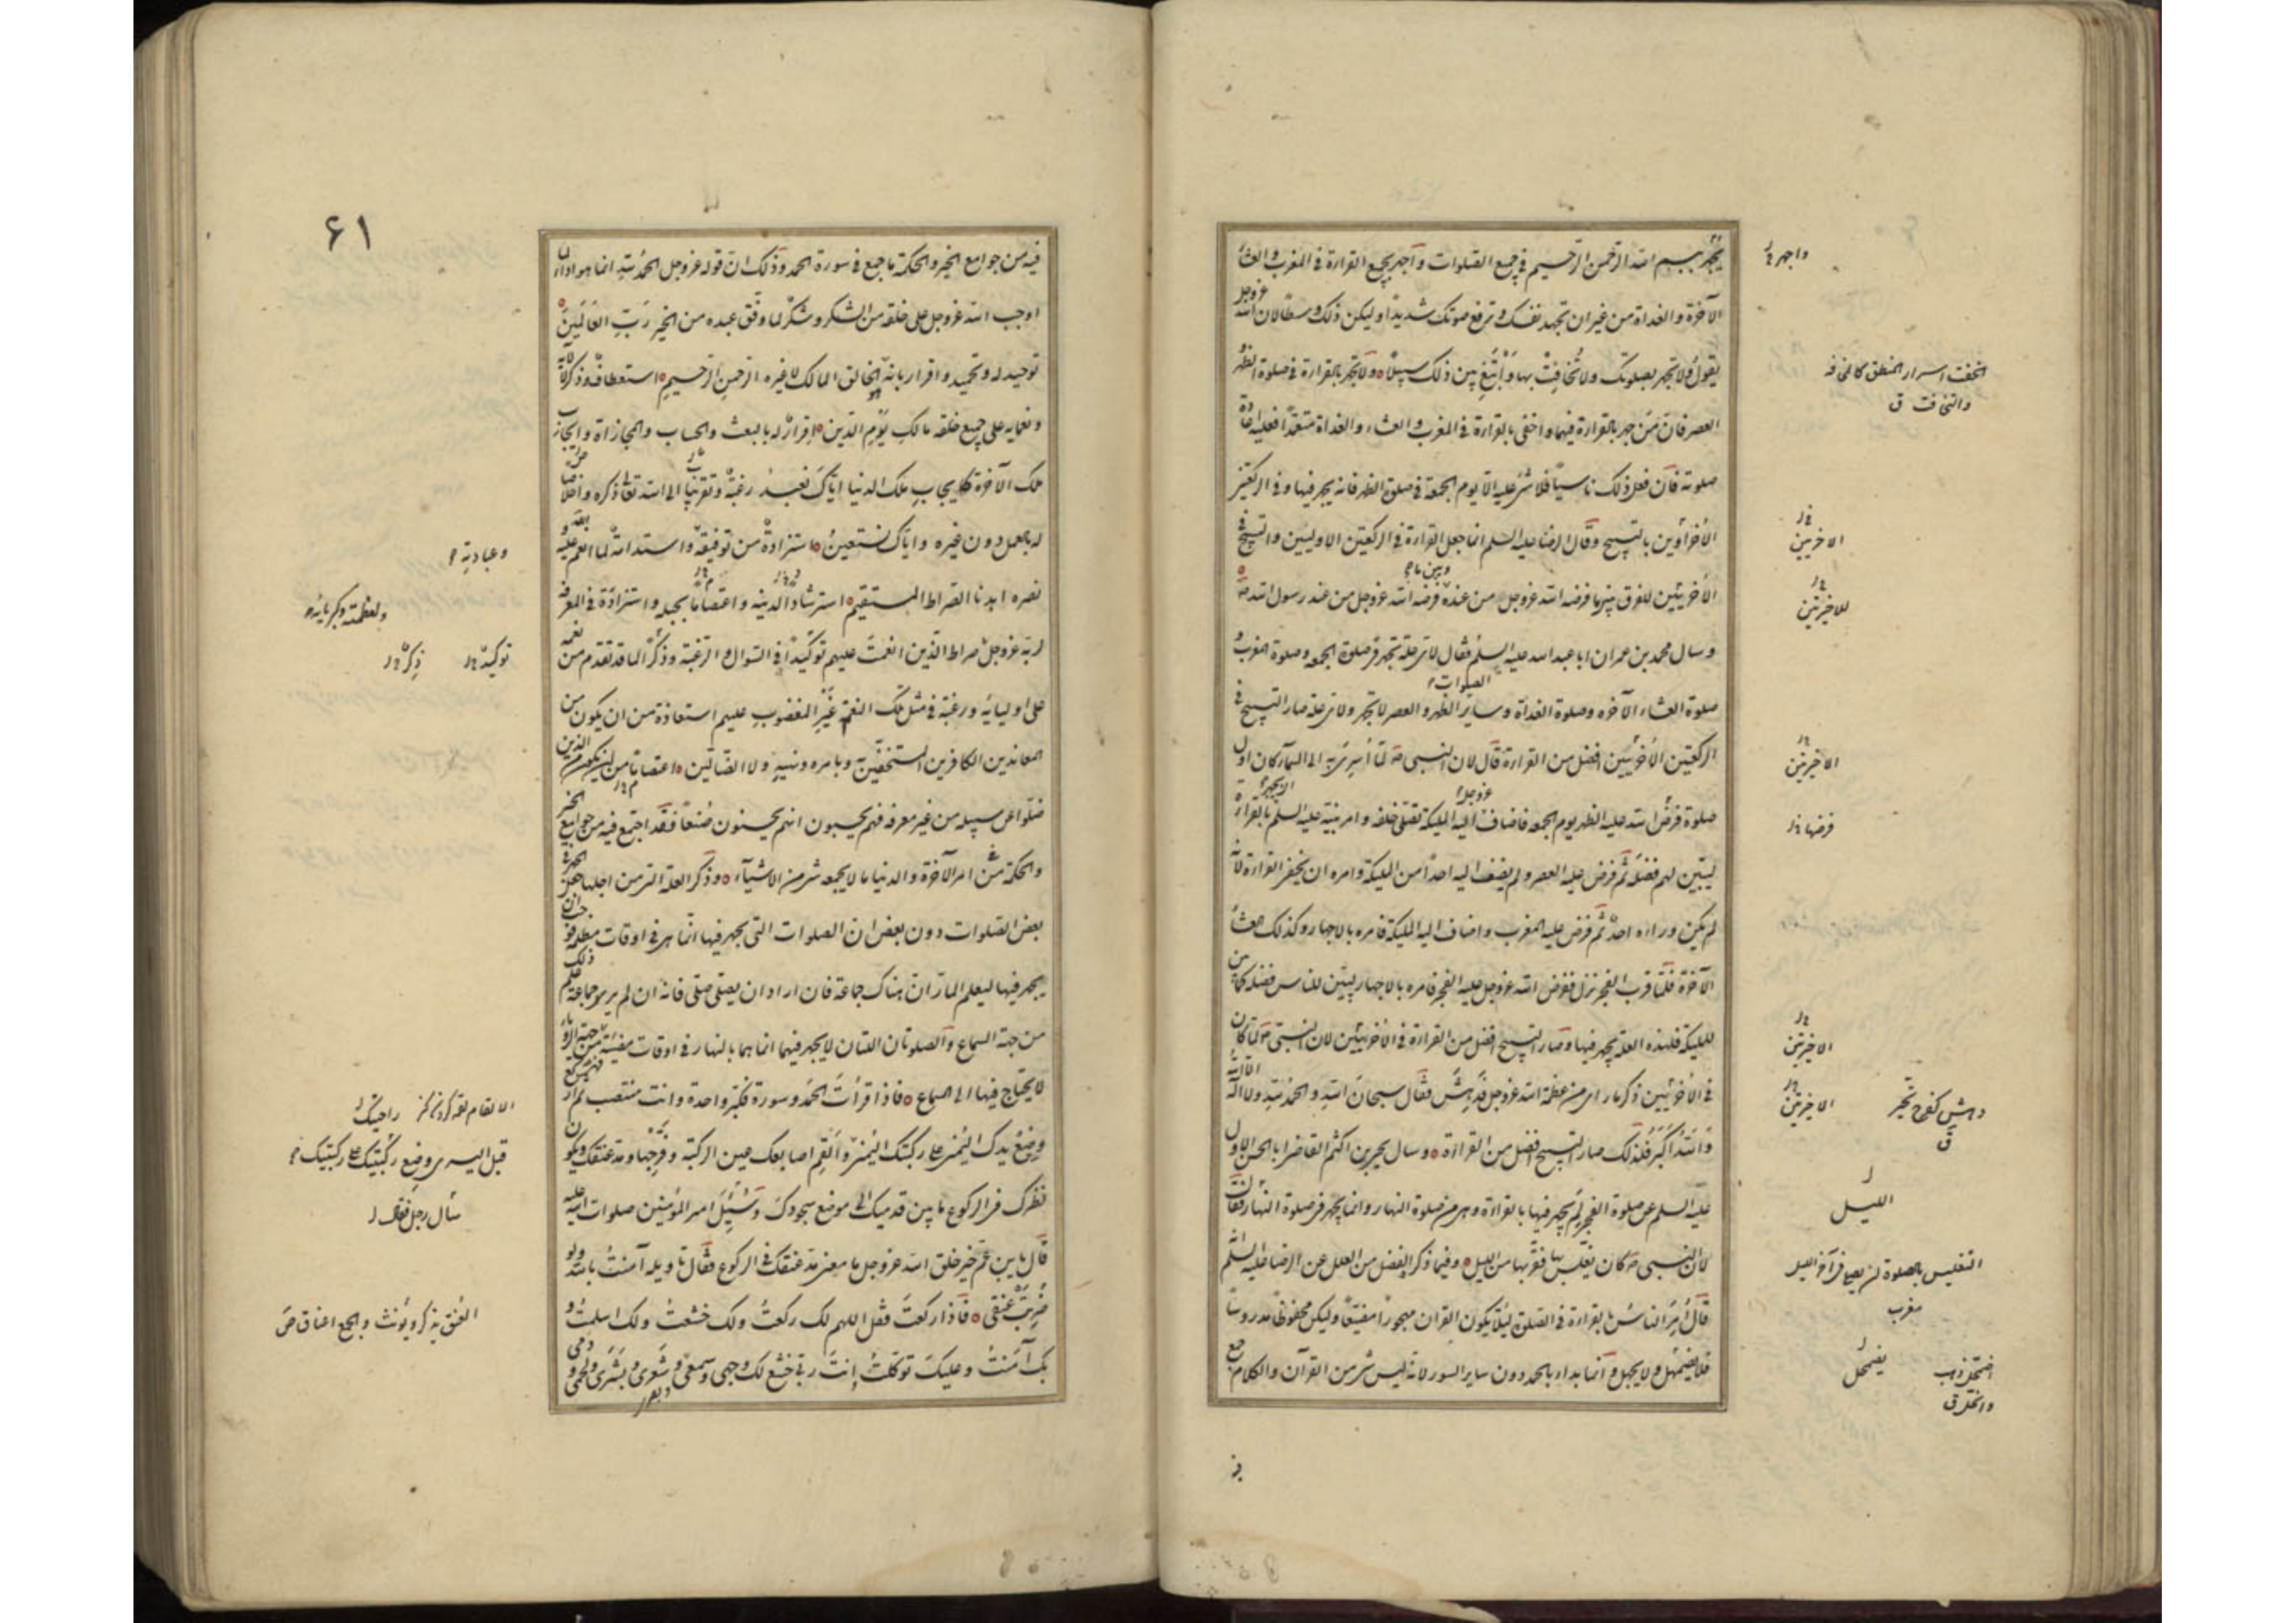 يجهر ببسم الله الرحمن الرحيم في جميع الصلوات وأجهر بجميع القراءة في المغرب والعشاء
الآخرة والغداة من غير ان تجهد نفسك وترفع صوتك شديدا وليكن ذلك وسطا لان الله عزوجل
يقول ولا تجهر بصلوتك ولا تخافت بها وابتغ بين ذلك سبيلا ولا تجهر بالقراءة في صلوة الظهر و
العصر فان من جهر بالقراءة فيهما واخفى بالقراءة في المغرب والعشاء والغداة متعمدا فعليه اعادة
صلوته فان فعل ذلك ناسيا فلا شئ عليه الا يوم الجمعة في صلوة الظهر فانه يجهر فيها وفي الركعتين
الأخراوين بالتسبيح وقال الرضا عليه السلم انما جعل القراءة في الركعتين الاوليين والتسبيح في
الأخريين للفرق بين ما فرضه الله عزوجل من عنده وبين ما فرضه الله عزوجل من عند رسول الله ص
وسال محمد بن عمران ابا عبد الله عليه السلم فقال لاى علة تجهر في صلوة الجمعه وصلوة المغرب و
صلوة العشاء الآخره وصلوة الغداة وساير الصلوات الظهر والعصر لا تجهر ولاى علة صار التسبيح في
الركعتين الأخريين افضل من القراءة قال لان النبي ص لما أسرى به الى السمآء كان اول
صلوة فرض الله عليه الظهر يوم الجمعه فاضاف الله عزوجل اليه المليكة تصلى خلفه وامر نبيه عليه السلم ان يجهر بالقراءة
ليتبين لهم فضله ثم فرض عليه العصر ولم يضف اليه احدا من المليكة وامره ان يخفى القراءة لأنه
لم يكن وراءه احد ثم فرض عليه المغرب واضاف اليه المليكة فامره بالاجهار وكذلك العشاء
الآخرة فلما قرب الفجر نزل ففرض الله عزوجل عليه الفجر فامره بالاجهار ليتبين للناس فضله كما بين
للمليكة فلهذه العلة يجهر فيها وصار التسبيح افضل من القراءة في الأخريين لان النبي ص لما كان
في الأخريين ذكر ما راى من عظمة الله عزوجل فدهش فقال سبحان الله والحمد لله ولا اله الا الله
والله اكبر فلذلك صار التسبيح افضل من القراءة وسال يحيى بن اكثم القاضى ابا الحسن الاول
عليه السلم عن صلوة الفجر لم يجهر فيها بالقراءة وهى من صلوة النهار وانما يجهر في صلوة الليل فقال
لان النبي ص كان يغلس بها فقربها من الليل وفيما ذكر الفضل من العلل عن الرضا عليه السلم
قال أمر الناس بالقراءة في الصلوة لئلا يكون القران مهجورا مضيعا وليكن محفوظا مدروسا
فلا يضمحل ولا يجهل وانما بدا بالحمد دون ساير السور لانه ليس شئ من القرآن والكلام جمع
واجهر
والتخافت ق
الاخريين
للاخيرتين
الاخيرتين
فرضها
الاخيرتين
الاخيرتين
دهش كفرح تحير
ق
الليل
التغليس بالصلوة ان يصلى في آخر الليل
مغرب
يضمحل
اضمحل ذهب
وانحل ق
۶۱
فيه من جوامع الخير والحكمة ما جمع في سورة الحمد وذلك ان قوله عزوجل الحمد لله انما هو اداء لما
اوجب الله عزوجل على خلقه من الشكر وشكر لما وفق عبده من الخير رب العالمين
توحيد له وتحميد واقرار بانه هو الخالق المالك لا غيره الرحمن الرحيم استعطاف وذكر لآلائه
ونعمائه على جميع خلقه مالك يوم الدين اقرار له بالبعث والحساب والمجازاة وايجاب
ملك الآخرة كايجاب ملك الدنيا اياك نعبد رغبة وتقربا الى الله تعالى ذكره واخلاصا
له بالعمل دون غيره واياك نستعين استزادة من توفيقه واستدامة لما انعم الله عليه و
نصره اهدنا الصراط المستقيم استرشادا لدينه واعتصاما بحبله واستزادة في المعرفة
لربه عزوجل صراط الذين انعمت عليهم توكيدا في السوال والرغبة وذكر لما قد تقدم من نعمه
على اوليائه ورغبة في مثل تلك النعم غير المغضوب عليهم استعاذة من ان يكون من
المعاندين الكافرين المستخفين به وبامره ونهيه ولا الضالين اعتصاما من ان يكون من الذين
ضلوا عن سبيله من غير معرفة فهم يحسبون انهم يحسنون صنعا فقد اجتمع فيه من جوامع الخير
والحكمة من امر الآخرة والدنيا ما لا يجمعه شئ من الاشيآء وذكر العلة التى من اجلها جعل الجهر في
بعض الصلوات دون بعض ان الصلوات التى يجهر فيها انما هى في اوقات مظلمة فوجب ان
يجهر فيها ليعلم المار ان هناك جماعة فان اراد ان يصلى صلى فانه ان لم ير جماعة علم ذلك
من جهة السماع والصلوتان اللتان لا يجهر فيهما انما هما بالنهار في اوقات مضيئة فهى من جهة الرؤية
لا يحتاج فيها الى السماع فاذا قرأت الحمد وسورة فكبر واحدة وانت منتصب ثم اركع
وضع يدك اليمنى على ركبتك اليمنى وألقم اصابعك عين الركبة وفرجها ومد عنقك ويكون
نظرك في الركوع ما بين قدميك الى موضع سجودك وسئل امير المؤمنين صلوات الله عليه
قال يا بن عم خير خلق الله عزوجل ما معنى مد عنقك في الركوع فقال تاويله آمنت بالله ولو
ضربت عنقى فاذا ركعت فقل اللهم لك ركعت ولك خشعت ولك اسلمت و
بك آمنت وعليك توكلت انت ربى خشع لك وجهى وسمعى وبصرى وشعرى وبشرى ولحمى ودمى
ولعظمته وكبريائه
توكيد
ذكر
راحتيك
قبل اليسرى وضع ركبتيك
سأل رجل فقال
العنق يذكر ويؤنث والجمع اعناق ص